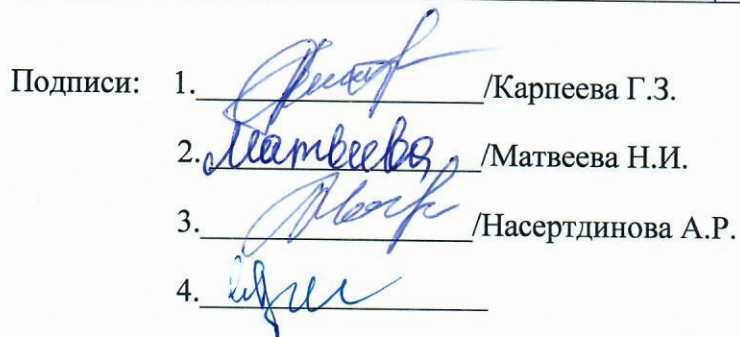 Подписи: 1. /Карпеева Г.З.
2. Матвеева /Матвеева Н.И.
3. /Насертдинова А.Р.
4.